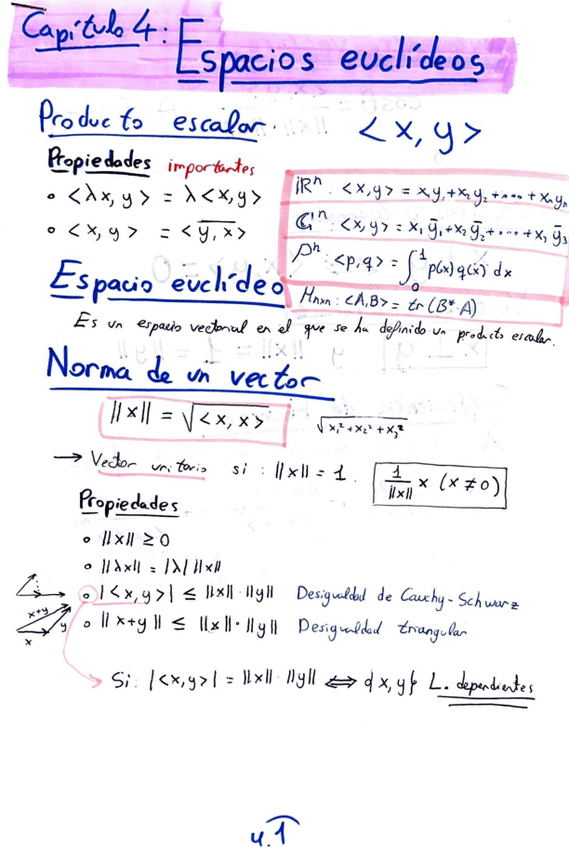 Capítulo 4: Espacios euclídeos
Producto escalar. < x, y >
Propiedades importantes
• < λx, y > = λ< x, y >
• < x, y > = < \overline{y, x} >
ℝⁿ : <x,y> = x₁y₁ + x₂y₂ + .... + xₙyₙ
ℂⁿ : <x,y> = x₁ȳ₁ + x₂ȳ₂ + ... + x₃ȳ₃
𝒫ⁿ : <p,q> = ∫₀¹ p(x) q(x) dx
Mₙₓₙ : <A,B> = tr (B* · A)
Espacio euclídeo
Es un espacio vectorial en el que se ha definido un producto escalar.
Norma de un vector
||x|| = √< x, x > √x₁² + x₂² + x₃²
→ Vector unitario si : ||x|| = 1. 1/||x|| x (x ≠ 0)
Propiedades
• ||x|| ≥ 0
• ||λx|| = |λ| ||x||
• |<x,y>| ≤ ||x|| · ||y|| Desigualdad de Cauchy-Schwarz
x+y
y
x
• ||x+y|| ≤ ||x|| · ||y|| Desigualdad triangular
Si: |<x,y>| = ||x|| · ||y|| ⟺ {x, y} L. dependientes
4.1